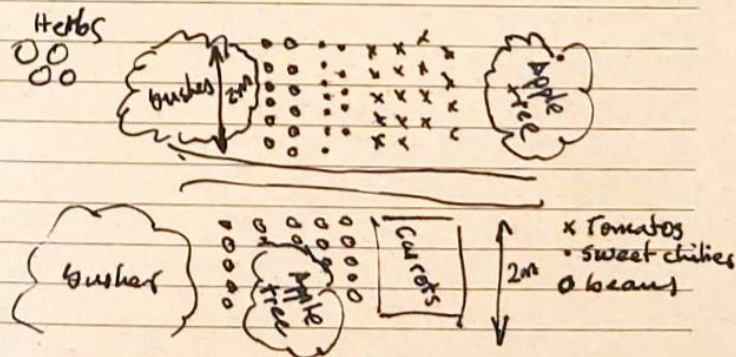 Herbs
bushes
2m
Apple
tree
bushes
Apple
tree
Carrots
2m
x Tomatos
• sweet chilies
o beans